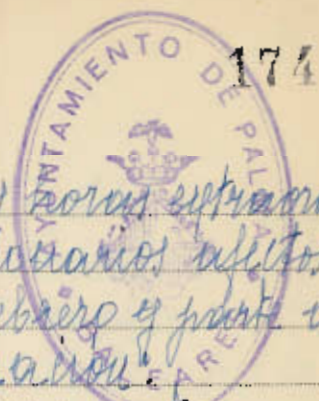 174
AYUNTAMIENTO DE PALMA
horas extraor
narios afectos
ebrero y parte
BALEARES